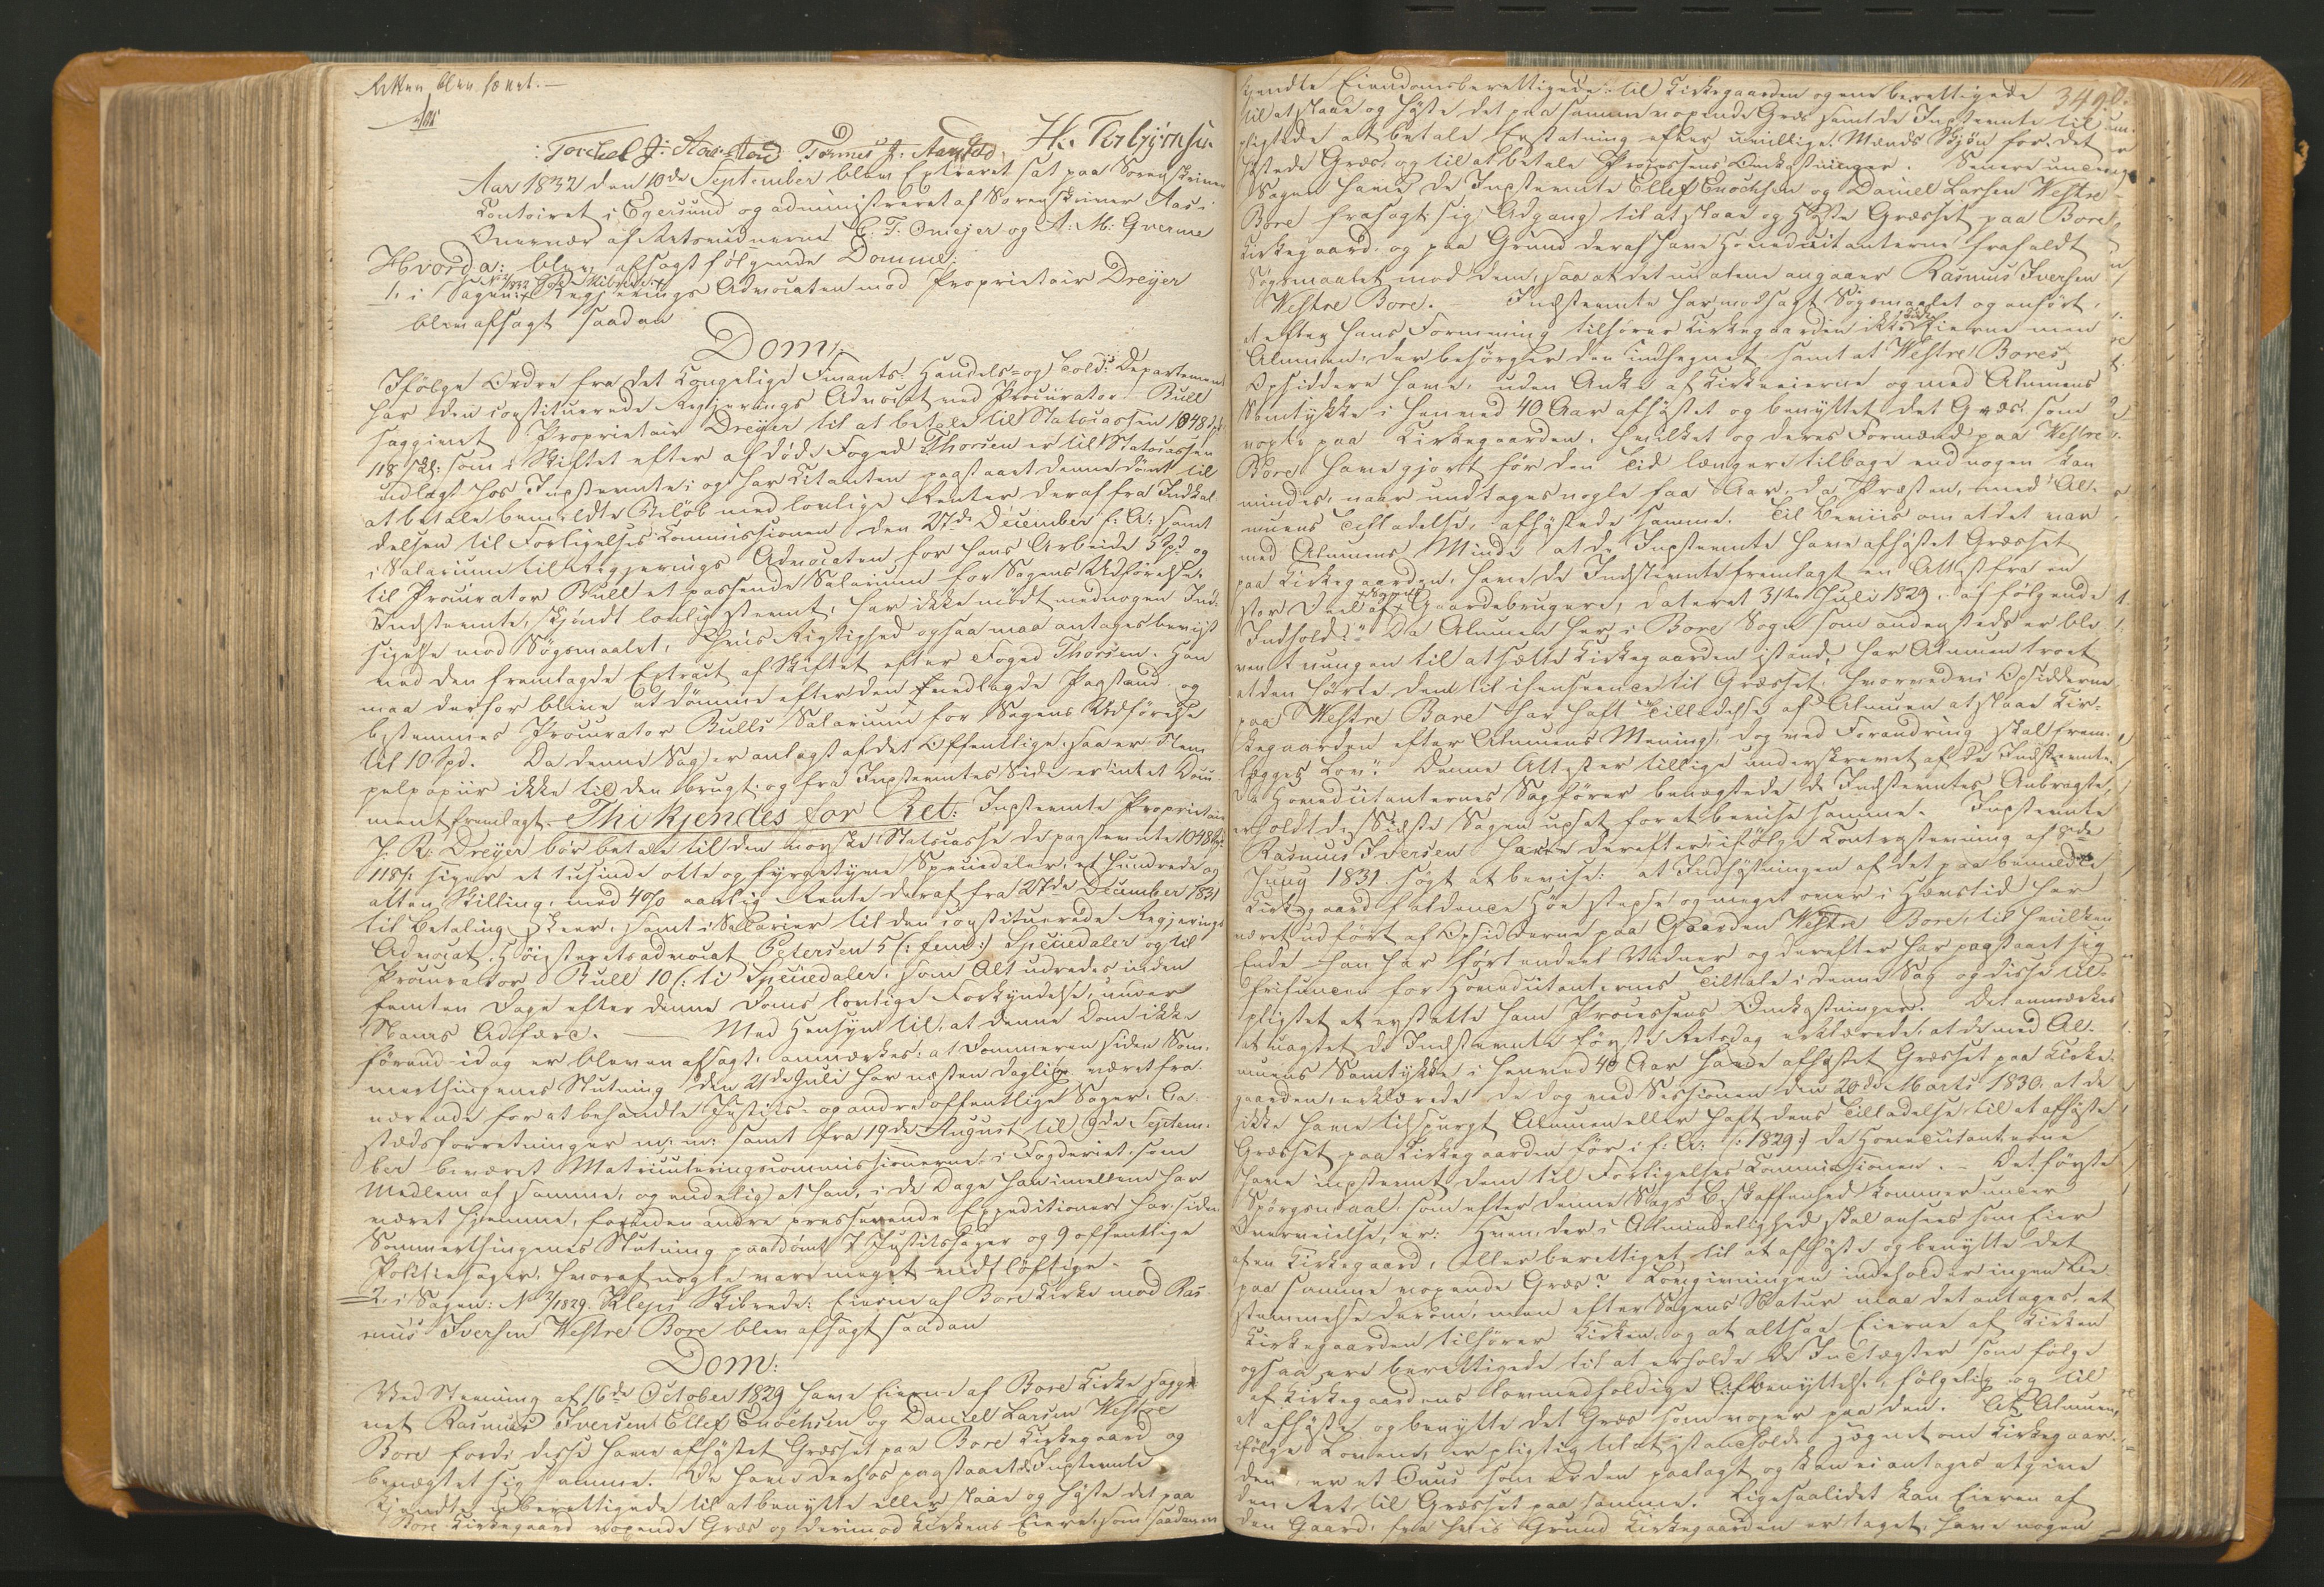 Retten blev hævet. —
Aas
Torchel J: Aarstad Tønnes J. Aarstad H. Torbjörnsen
Aar 1832 den 10de September blev Extraret sat paa Sorenskriver
Contoiret i Egersund og administreret af Sorenskriver Aas i
Overvær af Retsvidnerne C: T. Omejer og A: M: Gverme
Hvorda: blev afsagt følgende Domme:
1, i Sagen: No 2/1832 Regjerings Advocaten mod Proprietair Dreyer
blev afsagt saadan
Dom,
Ifølge Ordre fra det Kongelige Finants- Handels- og Told- Departement
har den constituerede Regjerings Advocat ved Procurator Bull
saggivet Proprietair Dreyer til at betale til Statscassen 1048 Spd
118 skl: som i Skiftet efter afdøde Foged Thorsen er til Statscassen
udlagt hos Indstevnte; og har Citanten paastaaet denne dømt til
at betale bemeldte Beløb med lovlige Renter deraf fra Indkal-
delsen til Forligelses Commissionen den 27de December f: A: samt
i Salarium til Regjerings Advocaten for hans Arbeide 5 Spd og
til Procurator Bull et passende Salarium for Sagens Udførelse.
Indstevnte, skjøndt lovlig stevnt, har ikke mødt med nogen Ind-
sigelse mod Søgsmaalet, hvis Rigtighed ogsaa maa antages beviist
ved den fremlagde Extract af Skiftet efter Foged Thorsen. Han
maa derfor blive at dømme efter den nedlagde Paastand og
bestemmes Procurator Bulls Salarium for Sagens Udførelse
til 10 Spd. Da denne Sag er anlagt af det Offentlige, saa er Stem-
pelpapiir ikke til den brugt, og fra Indstevntes Side er intet Docu-
ment fremlagt. Thi kjendes for Ret: Indstevnte Proprietair
J. R: Dreyer bør betale til den norske Statscasse de paastevnte 1048 Spd
118 s. siger et tusinde otte og fyrgetyve Speciedaler, et hundrede og
atten Skilling, med 4% aarlig Rente deraf fra 27de December 1831
til Betaling skeer, samt i Salarier til den constituerede Regjerings
Advocat, Høiesteretsadvocat Petersen 5 (: fem:) Speciedaler og til
Procurator Bull 10 (: ti Speciedaler, som Alt udredes inden
femten Dage efter denne Doms lovlige Forkyndelse, under
Navns Adfærd. — Med Hensyn til, at denne Dom ikke
førend idag er bleven afsagt, anmærkes: at Dommeren siden Som-
merthingenes Slutning den 21de Juli har næsten daglig været fra-
værende for at behandle Justits- og andre offentlige Sager, Aa-
stedsforretninger m: m: samt fra 19de August til 9de Septem-
ber beværet Matriculeringscommissionerne i Fogderiet som
Medlem af samme, og endelig at han, i de Dage han imellem har
været hjemme, foruden andre presserende Expeditioner har siden
Sommerthingenes Slutning paadømt 7 Justitssager og 9 offentlige
Politiesager, hvoraf nogle vare meget vidtløftige. —
2, i Sagen: No 2/1829. Kleps Skibrede: Eierne af Bore Kirke mod Ras-
mus Iversen Westre Bore blev afsagt saadan
Dom:
Ved Stevning af 16de October 1829 have Eierne af Bore Kirke saggi-
vet Rasmus Iversen Ellef Enochsen og Daniel Larsen Westre
Bore fordi disse have afhøstet Græsset paa Bore Kirkegaard og
benægtet sig samme. De have derhos paastaaet de Indstevnte
kjendte uberettigede til at benytte eller slaae og høste det paa
Bore Kirkegaard voxende Græs og derimod Kirkens Eiere, som saadanne
349.
kjendte Eiendomsberettigede til Kirkegaarden og ene berettigede
til at slaae og høste det paa samme voxende Græs samt de Indstevnte til-
pligtede at betale Erstatning efter uvillige Mænds Skjøn for det
høstede Græs, og til at betale Processens Omkostninger. Senere under
Sagen have de Indstevnte Ellef Enochsen og Daniel Larsen Westre
Bore frasagt sig Adgang til at slaae og høste Græsset paa Bore
Kirkegaard, og paa Grund deraf have Hovedcitanterne frafaldt
Søgsmaalet mod dem, saa at det nu alene angaaer Rasmus Iversen
Westre Bore. Indstevnte har modsagt Søgsmaalet og anført,
at efter hans Formening tilhører Kirkegaarden ikke Kirkeeierne men
Almuen, der besørger den indhegnet samt at Westre Bores
Opsiddere have, uden Anke af Kirkeeierne og med Almuens
Samtykke i henved 40 Aar afhøstet og benyttet det Græs som
voxte paa Kirkegaarden, hvilket og deres Formænd paa Westre
Bore have gjort før den Tid længere tilbage end nogen kan
mindes, naar undtages nogle faa Aar, da Præsten, med Al-
muens Tilladelse, afhøstede samme. Til Beviis om at det var
med Almuens Minde at de Indstevnte have afhøstet Græsset
paa Kirkegaarden, have de Indstevnte fremlagt en Attest fra en
stor Deel af Gaardebrugere, dateret 31te Juli 1829, af følgende
Indhold: "Da Almuen her i Bore Sogn som andensteds er ble-
ven tvungen til at sætte Kirkegaarden istand, har Almuen troet
at den hørte dem til i henseende til Græsset, hvorved vi Opsidderne
paa Westre Bore har haft Tilladelse af Almuen at slaae Kir-
kegaarden efter Almuens Mening, dog ved Forandring skal frem-
lægges Lov." Denne Attest er tillige underskrevet af de Indstevnte.
Da Hovedcitanternes Sagfører benægtede de Indstevntes Anbragte,
erholdt de Sidste Sagen udsat for at bevise samme. Indstevnte
Rasmus Iversen har derefter ifølge Contrastevning af 8de
Juny 1831 søgt at bevise: at Indhøstningen af det paa bemeldte
Kirkegaard faldende Høe stedse og meget over i Hævdstid har
været udført af Opsidderne paa Gaarden Westre Bore, til hvilken
Ende han har ført endeel Vidner og derefter har paastaaet sig
frifunden for Hovedcitanternes Tiltale i denne Sag og disse til-
pligtet at erstatte ham Processens Omkostninger. Det anmærkes
at uagtet de Indstevnte første Retsdag erklærede, at de med Al-
muens Samtykke i henved 40 Aar havde afhøstet Græsset paa Kirke-
gaarden, erklærede de dog ved Sessionen den 20de Marts 1830, at de
ikke have tilspurgt Almuen eller haft dens Tilladelse til at afhøste
Græsset paa Kirkegaarden før i f: A: (: 1829:) da Hovedcitanterne
have indstevnt dem til Forligelses Commissionen. — Det første
Spørgsmaal, som efter denne Sags Beskaffenhed kommer under
Overveielse, er: Hvem der i Almindelighed skal ansees som Eier
af en Kirkegaard, eller berettiget til at afhøste og benytte det
paa samme voxende Græs? Lovgivningen indeholder ingen Be-
stemmelse derom, men efter Sagens Natur maa det antages, at
Kirkegaarden tilhører Kirken, og at altsaa Eierne af Kirken
ogsaa ere berettigede til at erholde de Indtægter som følge
af Kirkegaardens lovmedholdige Afbenyttelse, følgelig og til
at afhøste og benytte det Græs som voxer paa den. At Almuen,
ifølge Loven, er pligtig til at istandholde Hegnet om Kirkegaar-
den er et Onus som er den paalagt og kan ei antages at give
den Ret til Græsset paa samme. Ligesaalidet kan Eieren af
den Gaard, fra hvis Grund Kirkegaarden er taget, have nogen